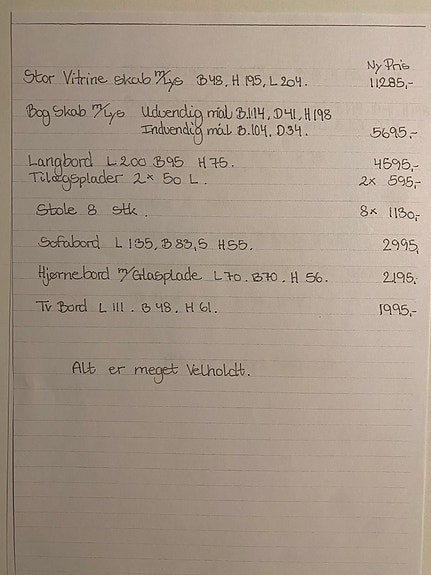 Ny Pris
Stor Vitrine skab m/Lys B48, H 195, L 204. 11285,-
Bog Skab m/Lys Udvendig mål B.114, D41, H198
Indvendig mål B.104, D34. 5695,-
Langbord L 200 B95 H 75. 4595,-
Tillægsplader 2x 50 L. 2x 595,-
Stole 8 stk. 8x 1130,-
Sofabord L 135, B 83,5 H55. 2995,
Hjørnebord m/Glasplade L70. B70. H 56. 2195,-
Tv Bord L 111. B 48. H 61. 1995,-
Alt er meget Velholdt.